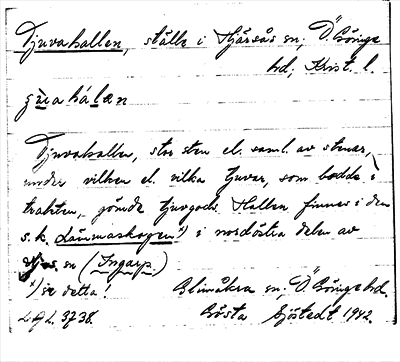 Tjuvahallen, ställe i Hjärsås sn; Ö. Göinge
hd; Krist. l.
Tjuvahallen, stor sten el. saml. av stenar,
under vilken el. vilka tjuvar, som bodde i
trakten, gömde tjuvgods. Hallen finnes i den
s. k. Länmaskogen x) i nordöstra delen av
Hjs. sn (Ingarp.)
x) se detta! Glimåkra sn; Ö. Göinge hd.
L.G.L. 3738. Gösta Sjöstedt 1942.